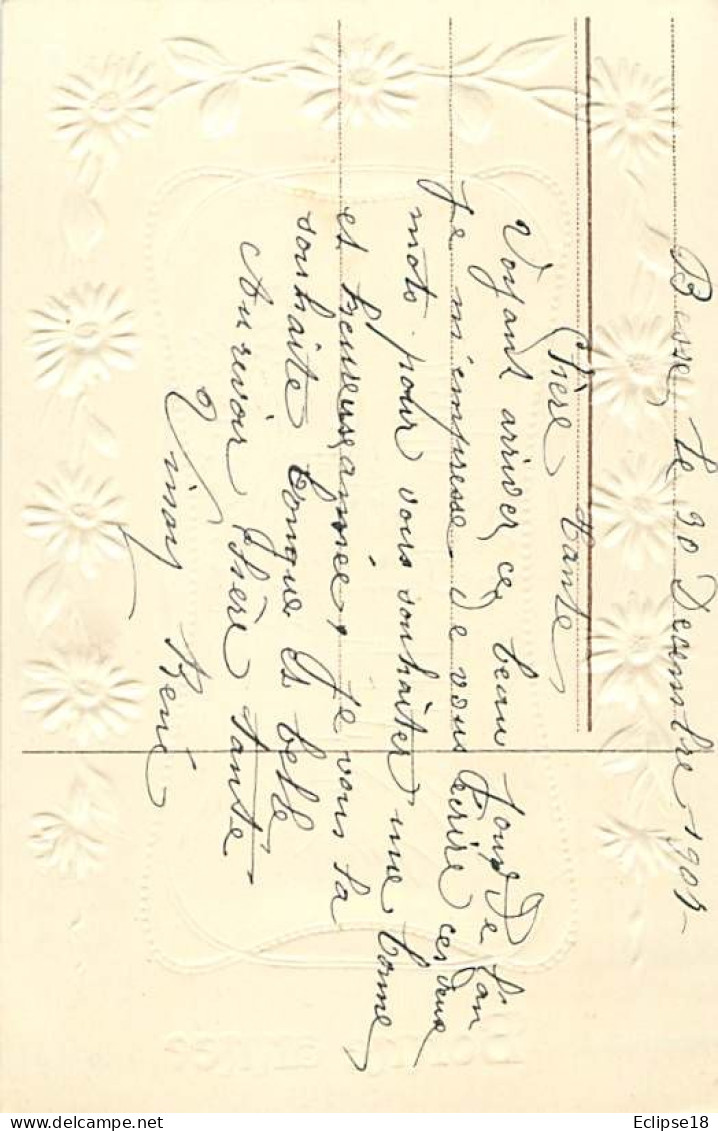 Besse, le 20 Desembre 1905
Chère tante
Voyant arriver, ce beau jour De l'an
Je m'empresse De vous Ecrire ces deux
mots pour vous souhaiter une bonne
et heureuse année, Je vous la
souhaite longue Et belle
Au revoir Chère tante
René
Eclipse18